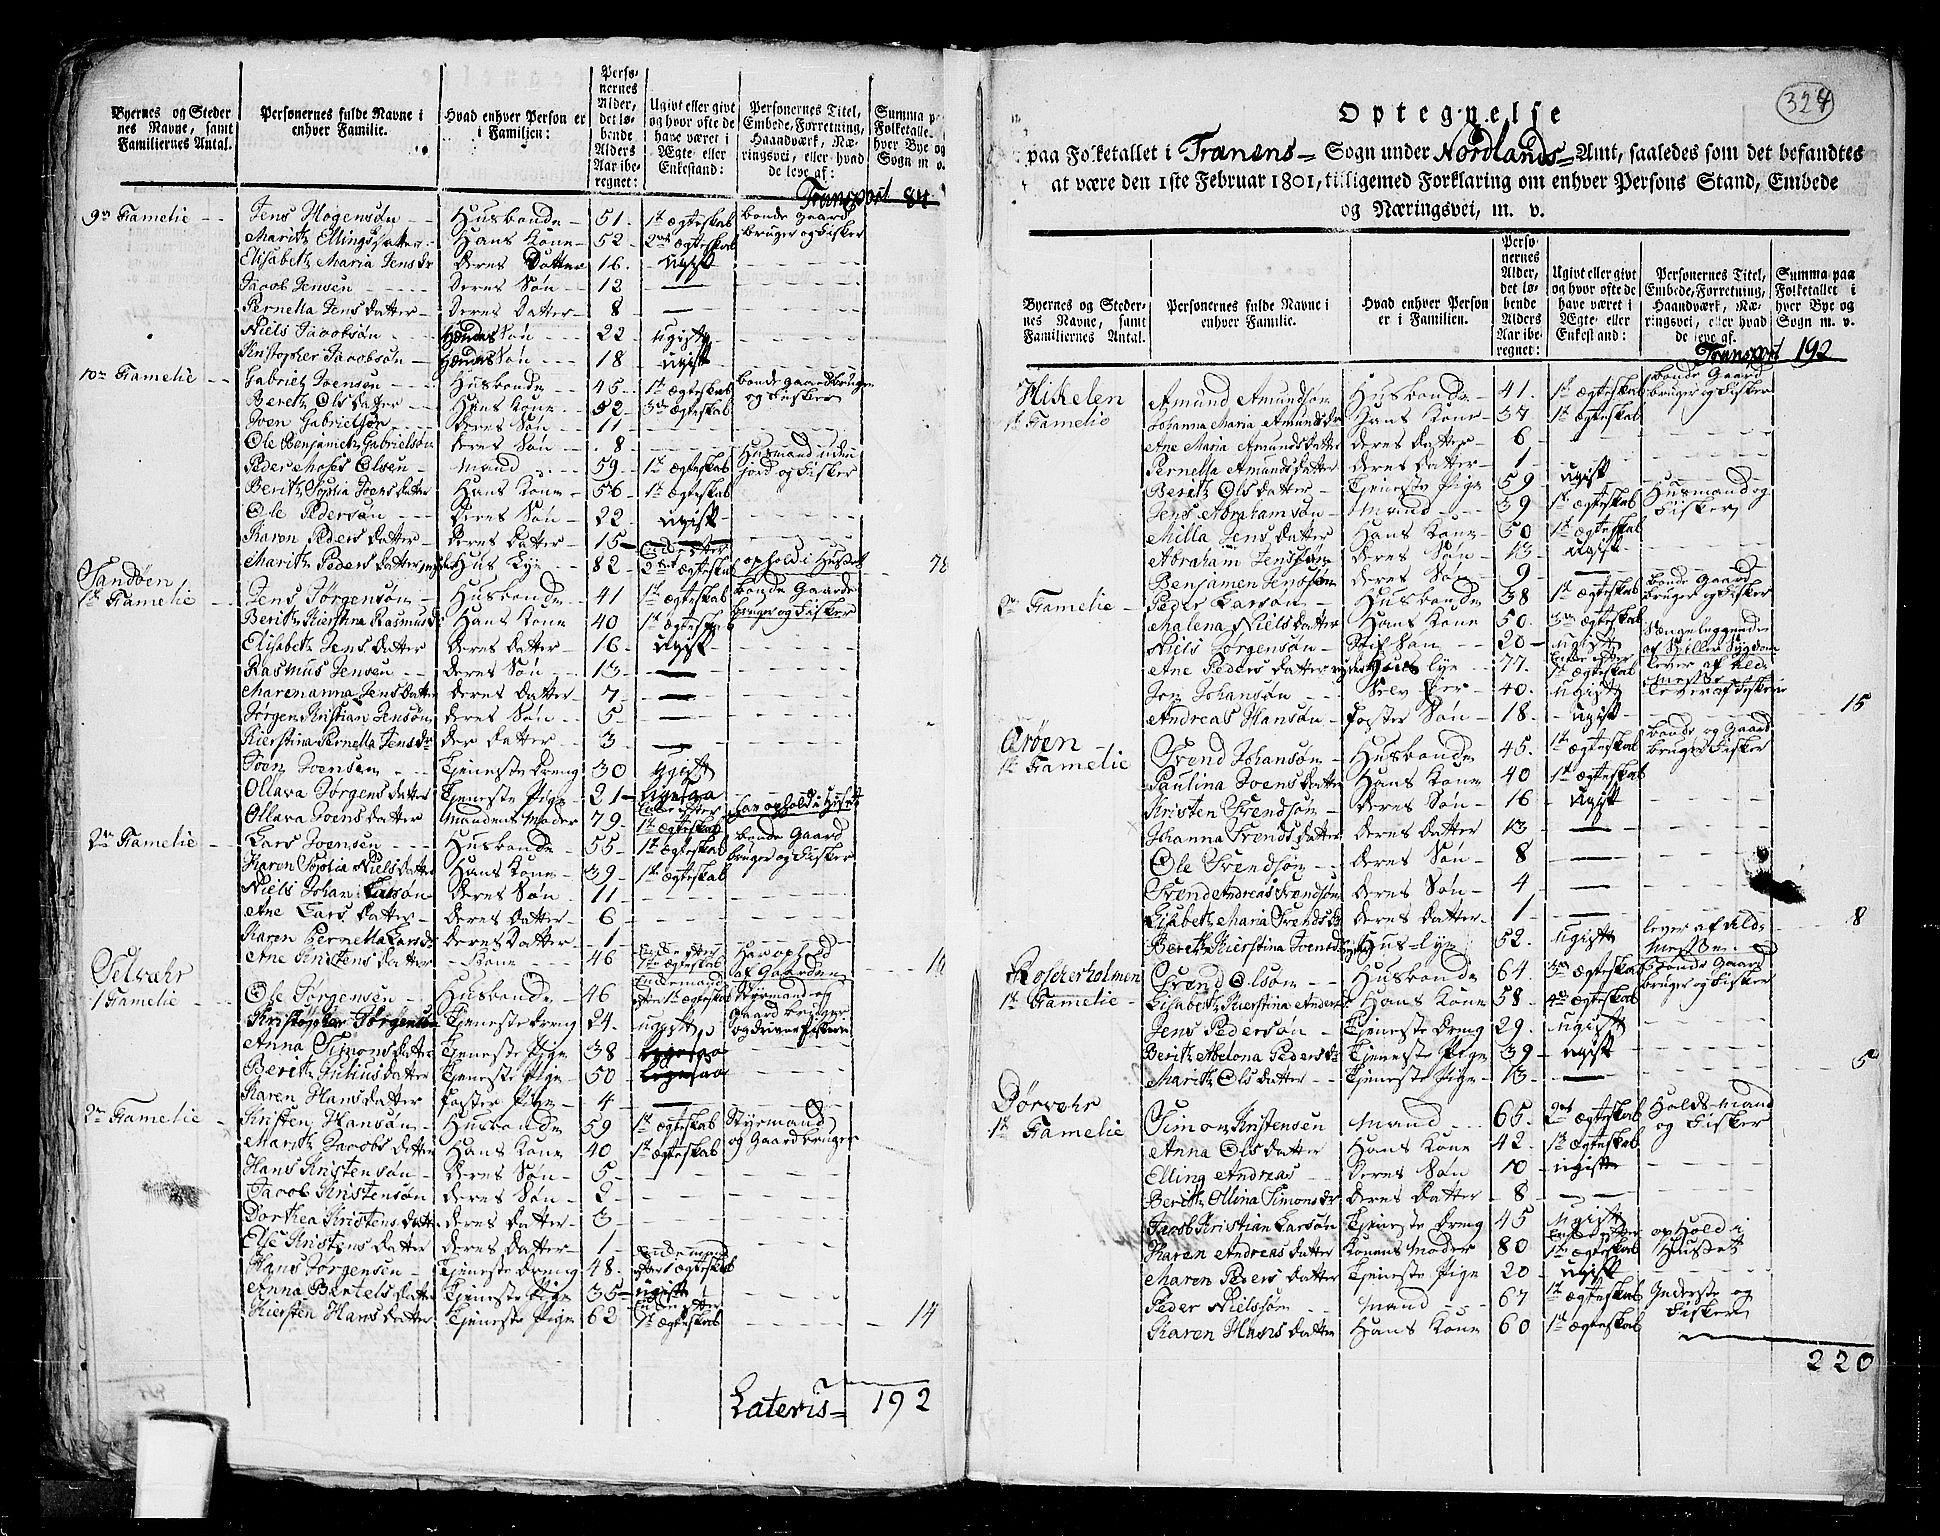 Byernes og Steder
nes Navne, samt
Familiernes Antal.
Personernes fulde Navne i
enhver Familie.
Hvad enhver Person er
i Familien:
Perso-
nernes
Alder,
det lø-
bende
Alders
Aar ibe-
regnet:
Ugivt eller givt
og hvor ofte de
have været i
Ægte eller
Enkestand:
Personernes Titel,
Embede, Forretning,
Haandværk, Næ-
ringsvei, eller hvad
de leve af:
Summa p
Folketalle
hver Bye og
Sogn m v.
Transport 84
9n Famelie Jens Hogensøn Husbonde 51. 1te ægteskab bonde gaard
Maritz Ellings datter Hans Kone 52. 2net ægteskab bruger og fisker
Elisabetz Maria Jens dr Deres Datter 16. ugift
Jacob Jensen Deres Søn 12 —
Pernella Jens datter Deres Datter 8 —
Niels Jacobsøn Hendes Søn 22 ugift
Kristopher Jacobsøn Hendes Søn 18 ugift
10n Famelie Gabriel Joensøn Husbonde 45 1te ægteskab bonde gaardbruger
Beretz Ols datter Hans Kone 52 3n ægteskab og fisker
Joen Gabrielsøn Deres Søn 11
Ole Benjamin Gabrielsøn Deres Søn 8 Husmand uden
Peder Moses Olsen Mand 59 1te ægteskab jord og Fisker
Beritz Sophia Joens datter Hans Kone 56 1te ægteskab
Ole Pedersøn Deres Søn 22 ugift
Karen Peders datter Deres Datter 15 —
Maritz Peders datter Hus Lye 82 2net ægteskab ophold i Huset 78
Sandøen
1te Famelie Jens Jørgensøn Husbonde 41 1te ægteskab bonde Gaards
Beritz Kierstina Rasmus dr Hans Kone 40 1te ægteskab bruger og Fisker
Elisabetz Jens datter Deres datter 16 ugift
Rasmus Jensen Deres Søn 13 —
Marenanna Jens datter deres datter 7 —
Jørgen Kristian Jensøn deres Søn 5 —
Kierstina Pernella Jens dr der datter 3 —
Joen Joensen Tjeneste dreng 30 ugift
Ollava Jørgens datter Tjeneste Pige 21
Ollava Joens datter Mandens Moder 79 1te ægteskab har ophold i Huset
2n Famelie Lars Joensen Husbonde 55 1te ægteskab bonde Gaard
Karen Sophia Niels datter Hans Kone 39 1te ægteskab bruger og Fisker
Niels Johan Larsøn Deres Søn 11
Ane Lars datter Deres datter 6
Karen Pernella Lars dr deres datter 1
Ane Kristens datter Kone 46 1te ægteskab Har ophold af Gaarden
Selvær
1 Famelie Ole Jørgensen Husbonde 46 Enkemand efter 1te ægteskab Styrmand og
Kristopher Jørgensøn Tjeneste dreng 24 ugift Gaard bruger
Anna Simons datter Tjeneste Pige 38 og driver fiskerie
Berit Julius datter Tjeneste Pige 50
Karen Hans datter foster Pige 4 —
2n Famelie Kristen Hansøn Husbonde 59 1te ægteskab Styrmand
Maritz Jacobs datter Hans Kone 40 1te ægteskab og Gaardbruger
Hans Kristensøn Deres Søn 5
Jacob Kristensøn deres Søn 2
Dorthea Kristens datter deres datter 3
Else Kristens datter deres datter 1
Hans Jørgensen Tjeneste dreng 48 Enkemand efter 1 ægteskab
Anna Bertels datter Tjeneste Pige 35 ugift
Kiersten Hans datter Tjeneste Pige 62 ægteskab 14
Lateris 192
324
Optegnelse
paa Folketallet i Tranens Sogn under Nordlands Amt, saaledes som det befandtes
at være den 1ste Februar 1801, tilligemed Forklaring om enhver Persons Stand, Embede
og Næringsvei, m. v.
Byernes og Steder-
nes Navne, samt
Familiernes Antal.
Personernes fulde Navne i
enhver Familie.
Hvad enhver Person
er i Familien.
Perso-
nernes
Alder,
det lø-
bende
Alders
Aar ibe-
regnet:
Ugivt eller givt
og hvor ofte de
have været i
Ægte eller
Enkestand:
Personernes Titel,
Embede, Forretning,
Haandværk, Næ-
ringsvei, eller hvad
de leve af.
Summa paa
Folketallet i
hver Bye og
Sogn m. v.
Transport 192
Hikelen Amund Amundsøn Husbonde 41. 1te ægteskab bonde Gaard
1te Famelie Johanna Maria Amunds dr Hans Kone 37 1te ægteskab bruger og Fisker
Ane Maria Amunds datter deres datter 6
Pernella Amunds datter deres datter 1
Beritz Ols datter Tjeneste Pige 59 ugift
Jens Abrahamsøn Mand 39 1te ægteskab Husmand og
Milla Jens datter Hans Kone 50 1te ægteskab Fisker
Abraham Jenssøn deres Søn 13 ugift
Benjamen Jenssøn deres Søn 9 —
2n Famelie Peder Larsøn Husbonde 38 1te ægteskab bonde Gaard
Malena Niels datter Hans Kone 50. 3n ægteskab bruger og Fisker
Niels Jørgensøn Stif Søn 20 ugift Sængeliggende
Ane Peders datter Huus lye 77. 1te ægteskab lever af Ald-
Jon Johansøn Selv Eier 40. ugift lever af fiskerie
Andreas Hansøn foster Søn 18 ugift 15
Orøen
1te Famelie Svend Johansøn Husbonde 45. 1te ægteskab bonde og Gaard
Paulina Joens datter Hans Kone 40 1te ægteskab bruger Fisker
Kristen Svendsøn deres Søn 16 ugift
Johanna Svends datter Deres datter 13 —
Ole Svendsøn deres Søn 8 —
Svend Andreas Svendsøn deres Søn 4 —
Lisabetz Maria Svends dr deres datter 1 —
Beritz Kierstina Joens dr Hus-lye 52. ugift lever af Ald- 8
Rosckerholmen Svend Olsøn Husbonde 64. 3n ægteskab bonde Gaard
1te Famelie Lisabetz Kierstina Anders dr Hans Kone 58 4n ægteskab bruger og Fisker
Jens Pedersøn Tjeneste dreng 29. ugift
Beritz Abelona Peders dr Tjeneste Pige 39 ugift
Maritz Ols datter Tjeneste Pige 13 — 5
Dørvær
1te Famelie Simon Kristensen Mand 65. 2net ægteskab Holds-Mand
Anna Ols datter Hans Kone 42. 1te ægteskab og Fisker
Elling Andreas Deres Søn 10 ugift
Beritz Ollina Simons dr deres datter 8 —
Jacob Kristian Larsøn Tjeneste dreng 45 ugift
Karen Andreas datter Konens Moder 80 1te ægteskab ophold i Huset
Maren Peders datter Tjeneste Pige 20 ugift
Peder Nielssøn Mand 67 1te ægteskab Inderste og
Karen Hans datter Hans Kone 60 1te ægteskab Fisker
220